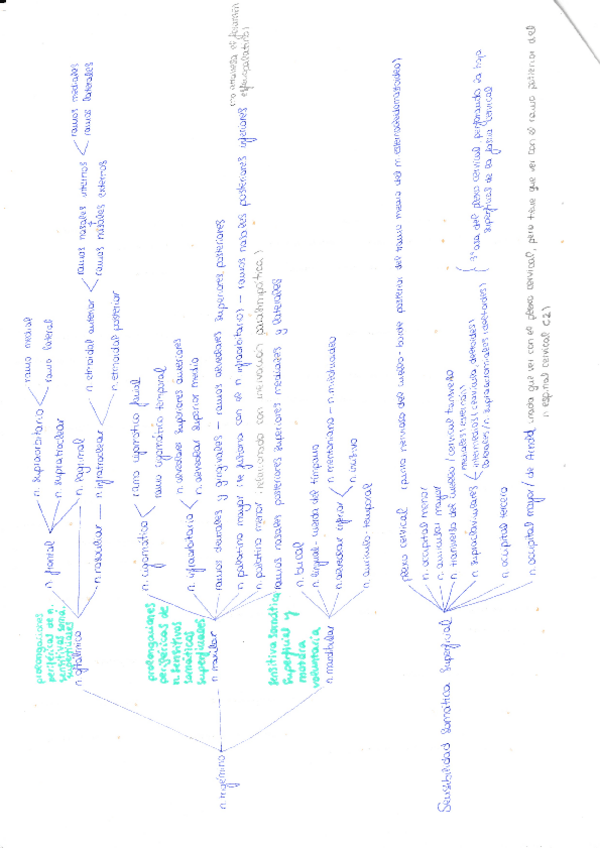 n. trigémino
prolongaciones
periféricas de n.
sensitivas somá.
superficiales
n. oftálmico
n. frontal
n. supraorbitario
ramo medial
ramo lateral
n. supratroclear
n. lagrimal
n. nasociliar
n. infratroclear
n. etmoidal anterior
ramos nasales internos
ramos mediales
ramos laterales
ramos nasales externos
n. etmoidal posterior
prolongaciones
periféricas de
n. sensitivas
somáticas
superficiales
n. maxilar
n. cigomático
ramo cigomático facial
ramo cigomático temporal
n. infraorbitario
n. alveolares superiores anteriores
n. alveolar superior medio
ramos dentales y gingivales - ramos alveolares superiores posteriores
n. palatino mayor (se fusiona con el n infraorbitario) - ramos nasales posteriores inferiores
(no atraviesa el foramen
esfenopalatino)
n. palatino menor (relacionado con inervación parasimpática)
ramos nasales posteriores superiores mediales y laterales
sensitiva somática
superficial y
motora
voluntaria
n. mandibular
n. bucal
n. lingual - cuerda del tímpano
n. alveolar inferior
n. mentoniano - n. milohioideo
n. incisivo
n. auriculo-temporal
Sensibilidad Somática Superficial
plexo cervical (punto nervioso del cuello - borde posterior del tramo medio del m. esternocleidomastoideo)
n. occipital menor
n. auricular mayor
n. transverso del cuello / cervical transverso
n. supraclaviculares
mediales (esternais)
intermedios (cervicales claviculares)
laterales (n. supraacromiales laterales)
1ª asa del plexo cervical perforando la hoja
superficial de la fascia cervical
n. occipital tercero
n. occipital mayor / de Arnold (nada que ver con el plexo cervical, pero tiene que ver con el ramo posterior del
n. espinal cervical C2)